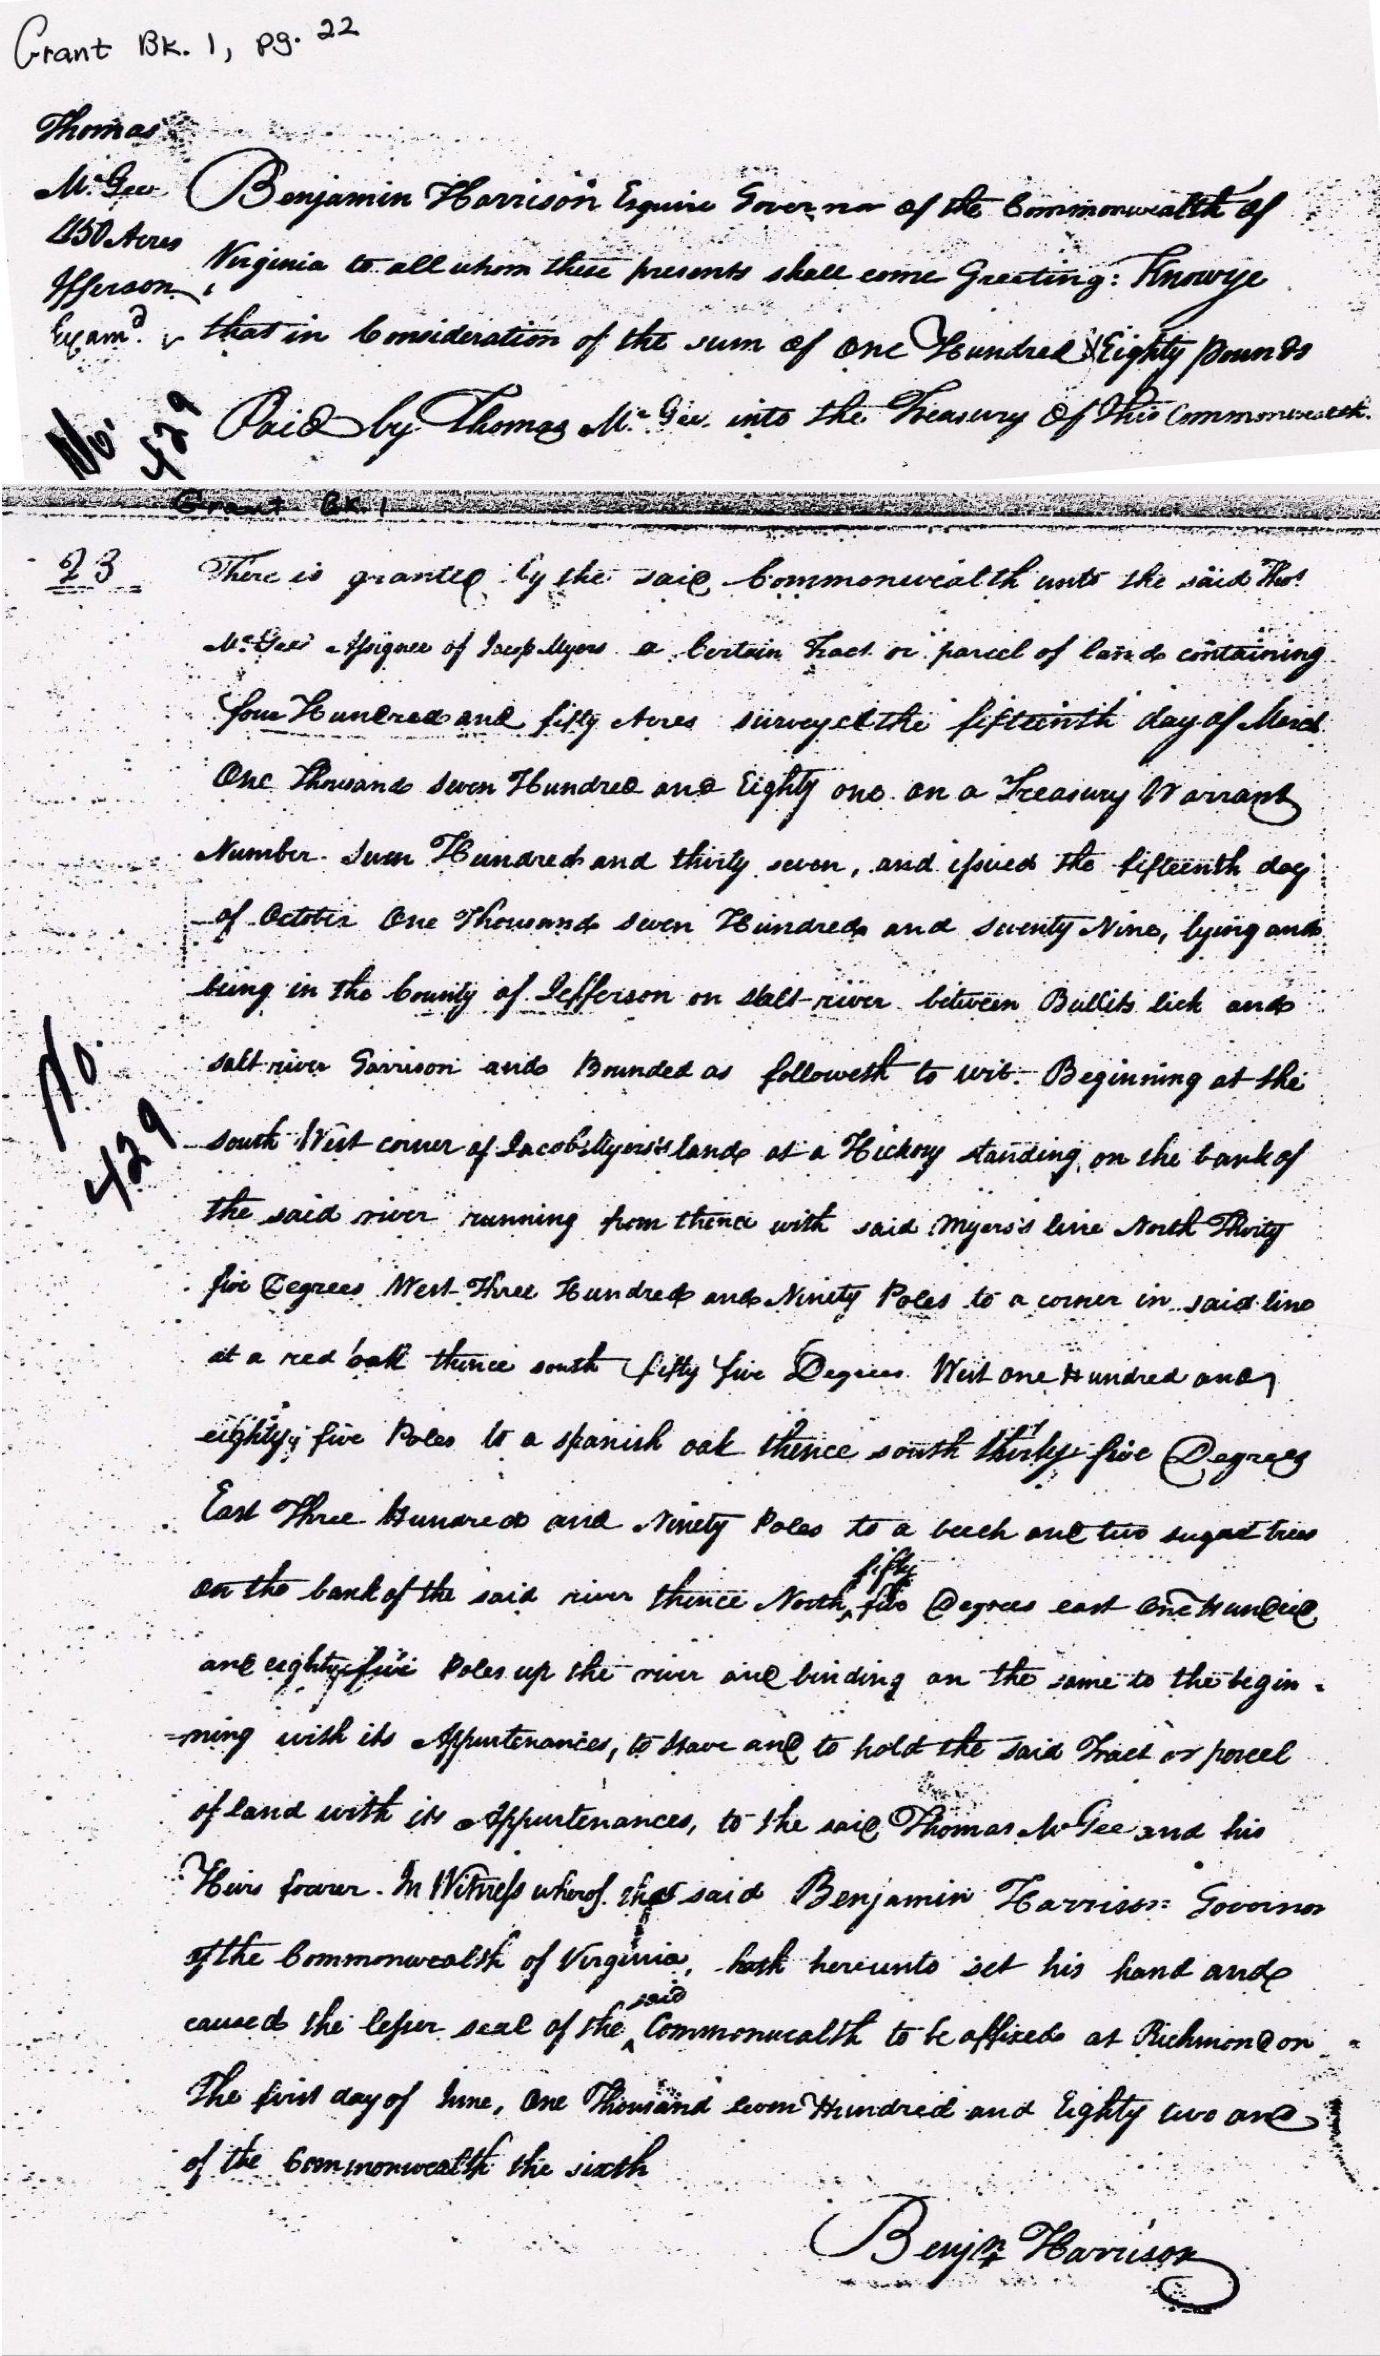 Grant Bk. 1, pg. 22
Thomas
Mc Gee
450 Acres
Jefferson
Examd.
No. 429
Benjamin Harrison Esquire Governor of the Commonwealth of
Virginia to all whom these presents shall come Greeting: Know ye
that in Consideration of the sum of one Hundred & Eighty pounds
Paid by Thomas Mc Gee into the Treasury of this Commonwealth.
Grant Bk. 1
23
There is granted by the said Commonwealth unto the said Thos
Mc Gee Assignee of Jacob Myers a Certain Tract or parcel of land containing
four Hundred and fifty Acres surveyed the fifteenth day of March
One Thousand Seven Hundred and Eighty one on a Treasury Warrant
Number Seven Hundred and thirty seven, and issued the fifteenth day
of October One Thousand Seven Hundred and Seventy Nine, lying and
being in the County of Jefferson on Salt river between Bullits lick and
salt river Garrison and Bounded as followeth to wit. Beginning at the
No. 429
south West corner of Jacob Myers's land at a Hickory standing on the bank of
the said river running from thence with said Myers's line North Thirty
five Degrees West Three Hundred and Ninety Poles to a corner in said line
at a red oak thence south fifty five Degrees West one Hundred and
eighty five Poles to a spanish oak thence south thirty five Degrees
East Three Hundred and Ninety Poles to a beech and two sugar trees
on the bank of the said river thence North fifty five Degrees east One Hundred
and eighty five Poles up the river and binding on the same to the begin-
-ning with its Appurtenances, to Have and to hold the said Tract or parcel
of land with its Appurtenances, to the said Thomas Mc Gee and his
Heirs forever. In Witness whereof the said Benjamin Harrison Governor
of the Commonwealth of Virginia, hath hereunto set his hand and
caused the lesser seal of the said Commonwealth to be affixed at Richmond on
The first day of June, One Thousand seven Hundred and Eighty two and
of the Commonwealth the sixth
Benjn Harrison